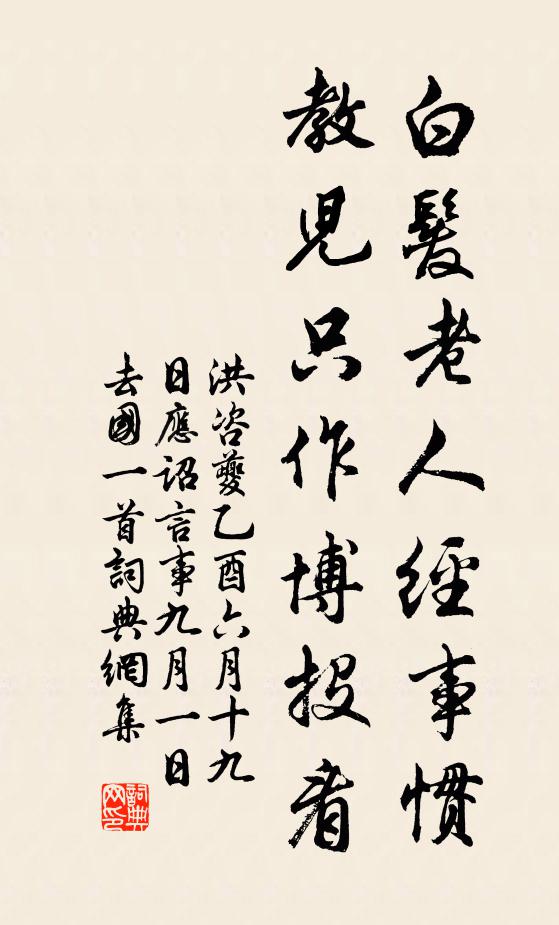 白髮老人經事慣
教兒只作博投看
洪咨夔乙酉六月十九
日應詔言事九月一日
去國一首詞典網集
詞典
网印